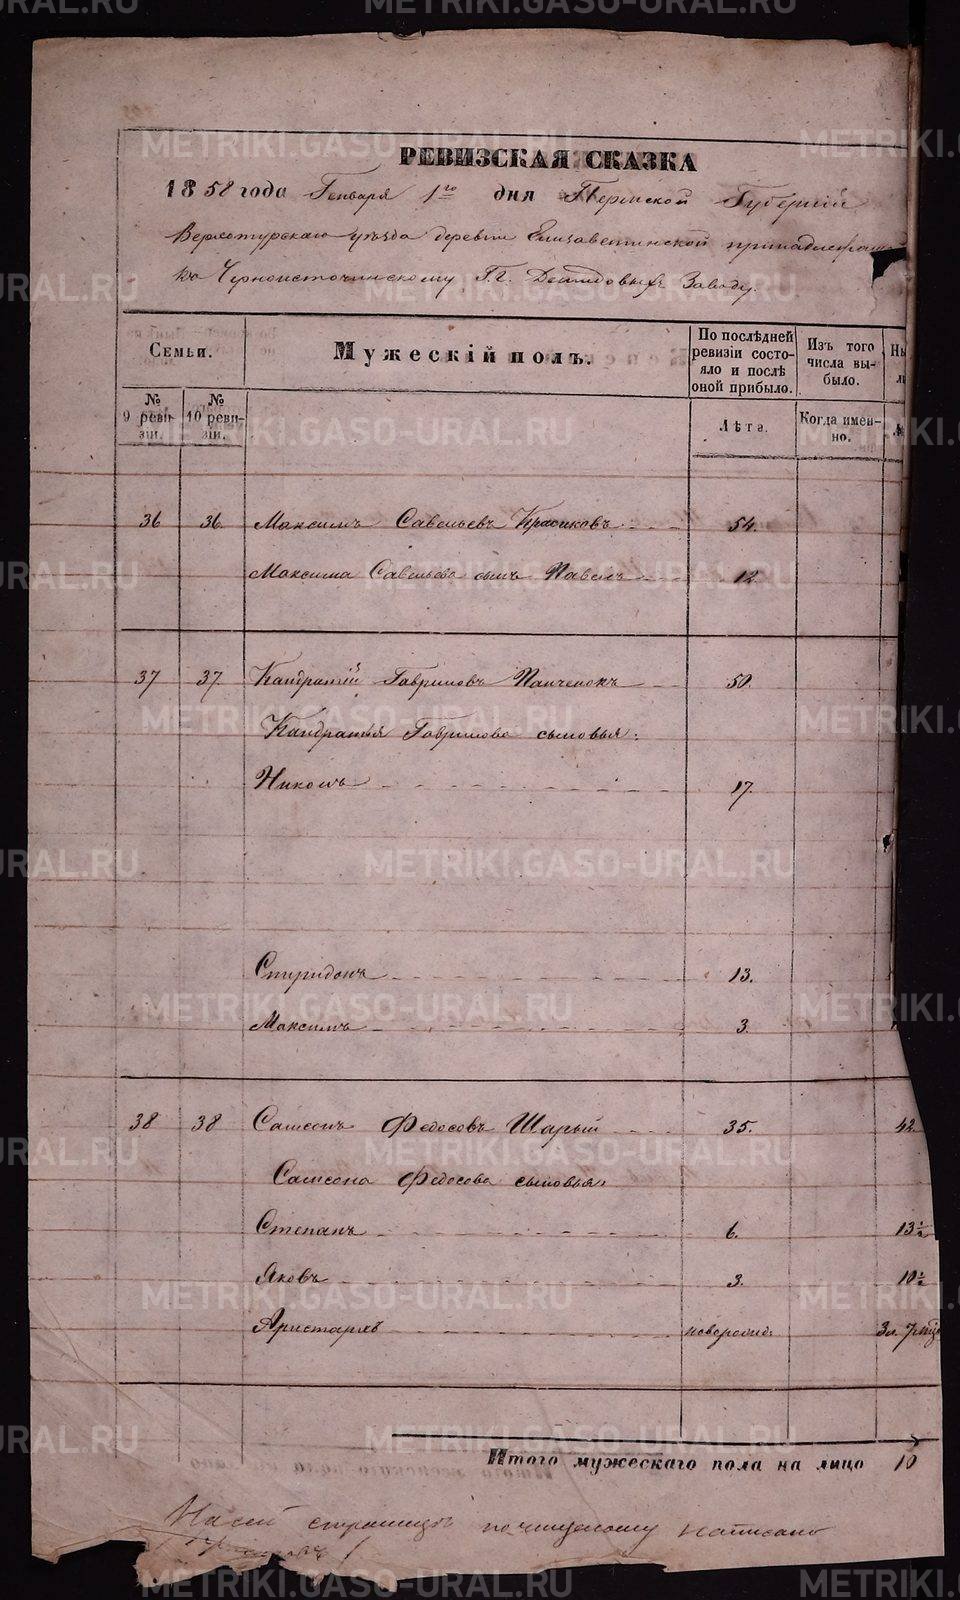 РЕВИЗСКАЯ СКАЗКА
1858 года Генваря 1го дня Пермской Губерніи
Верхотурскаго уѣзда деревни Елизаветинской
Черноисточинскому Г.г. Демидовыхъ Заводу.
Семьи.
Мужескій полъ.
По послѣдней ревизіи состояло и послѣ оной прибыло.
Изъ того числа выбыло.
№ 9 ревизіи.
№ 10 ревизіи.
Лѣта.
Когда именно.
36 36. Максимъ Савельевъ Красиковъ 54.
Максима Савельева сынъ Павелъ 12
37 37. Кандратій Гавриловъ Панченокъ 50.
Кандратья Гаврилова сыновья:
Никонъ 17.
Спиридонъ 13.
Максимъ 3.
38 38 Самсонъ Федосовъ Шарый 35. 42
Самсона Федосова сыновья:
Степанъ 6. 13½
Яковъ 3. 10½
Аристархъ новорожд. 3л. 7
Итого мужескаго пола на лицо 10
На сей страницѣ по чищеному написано
METRIKI.GASO-URAL.RU